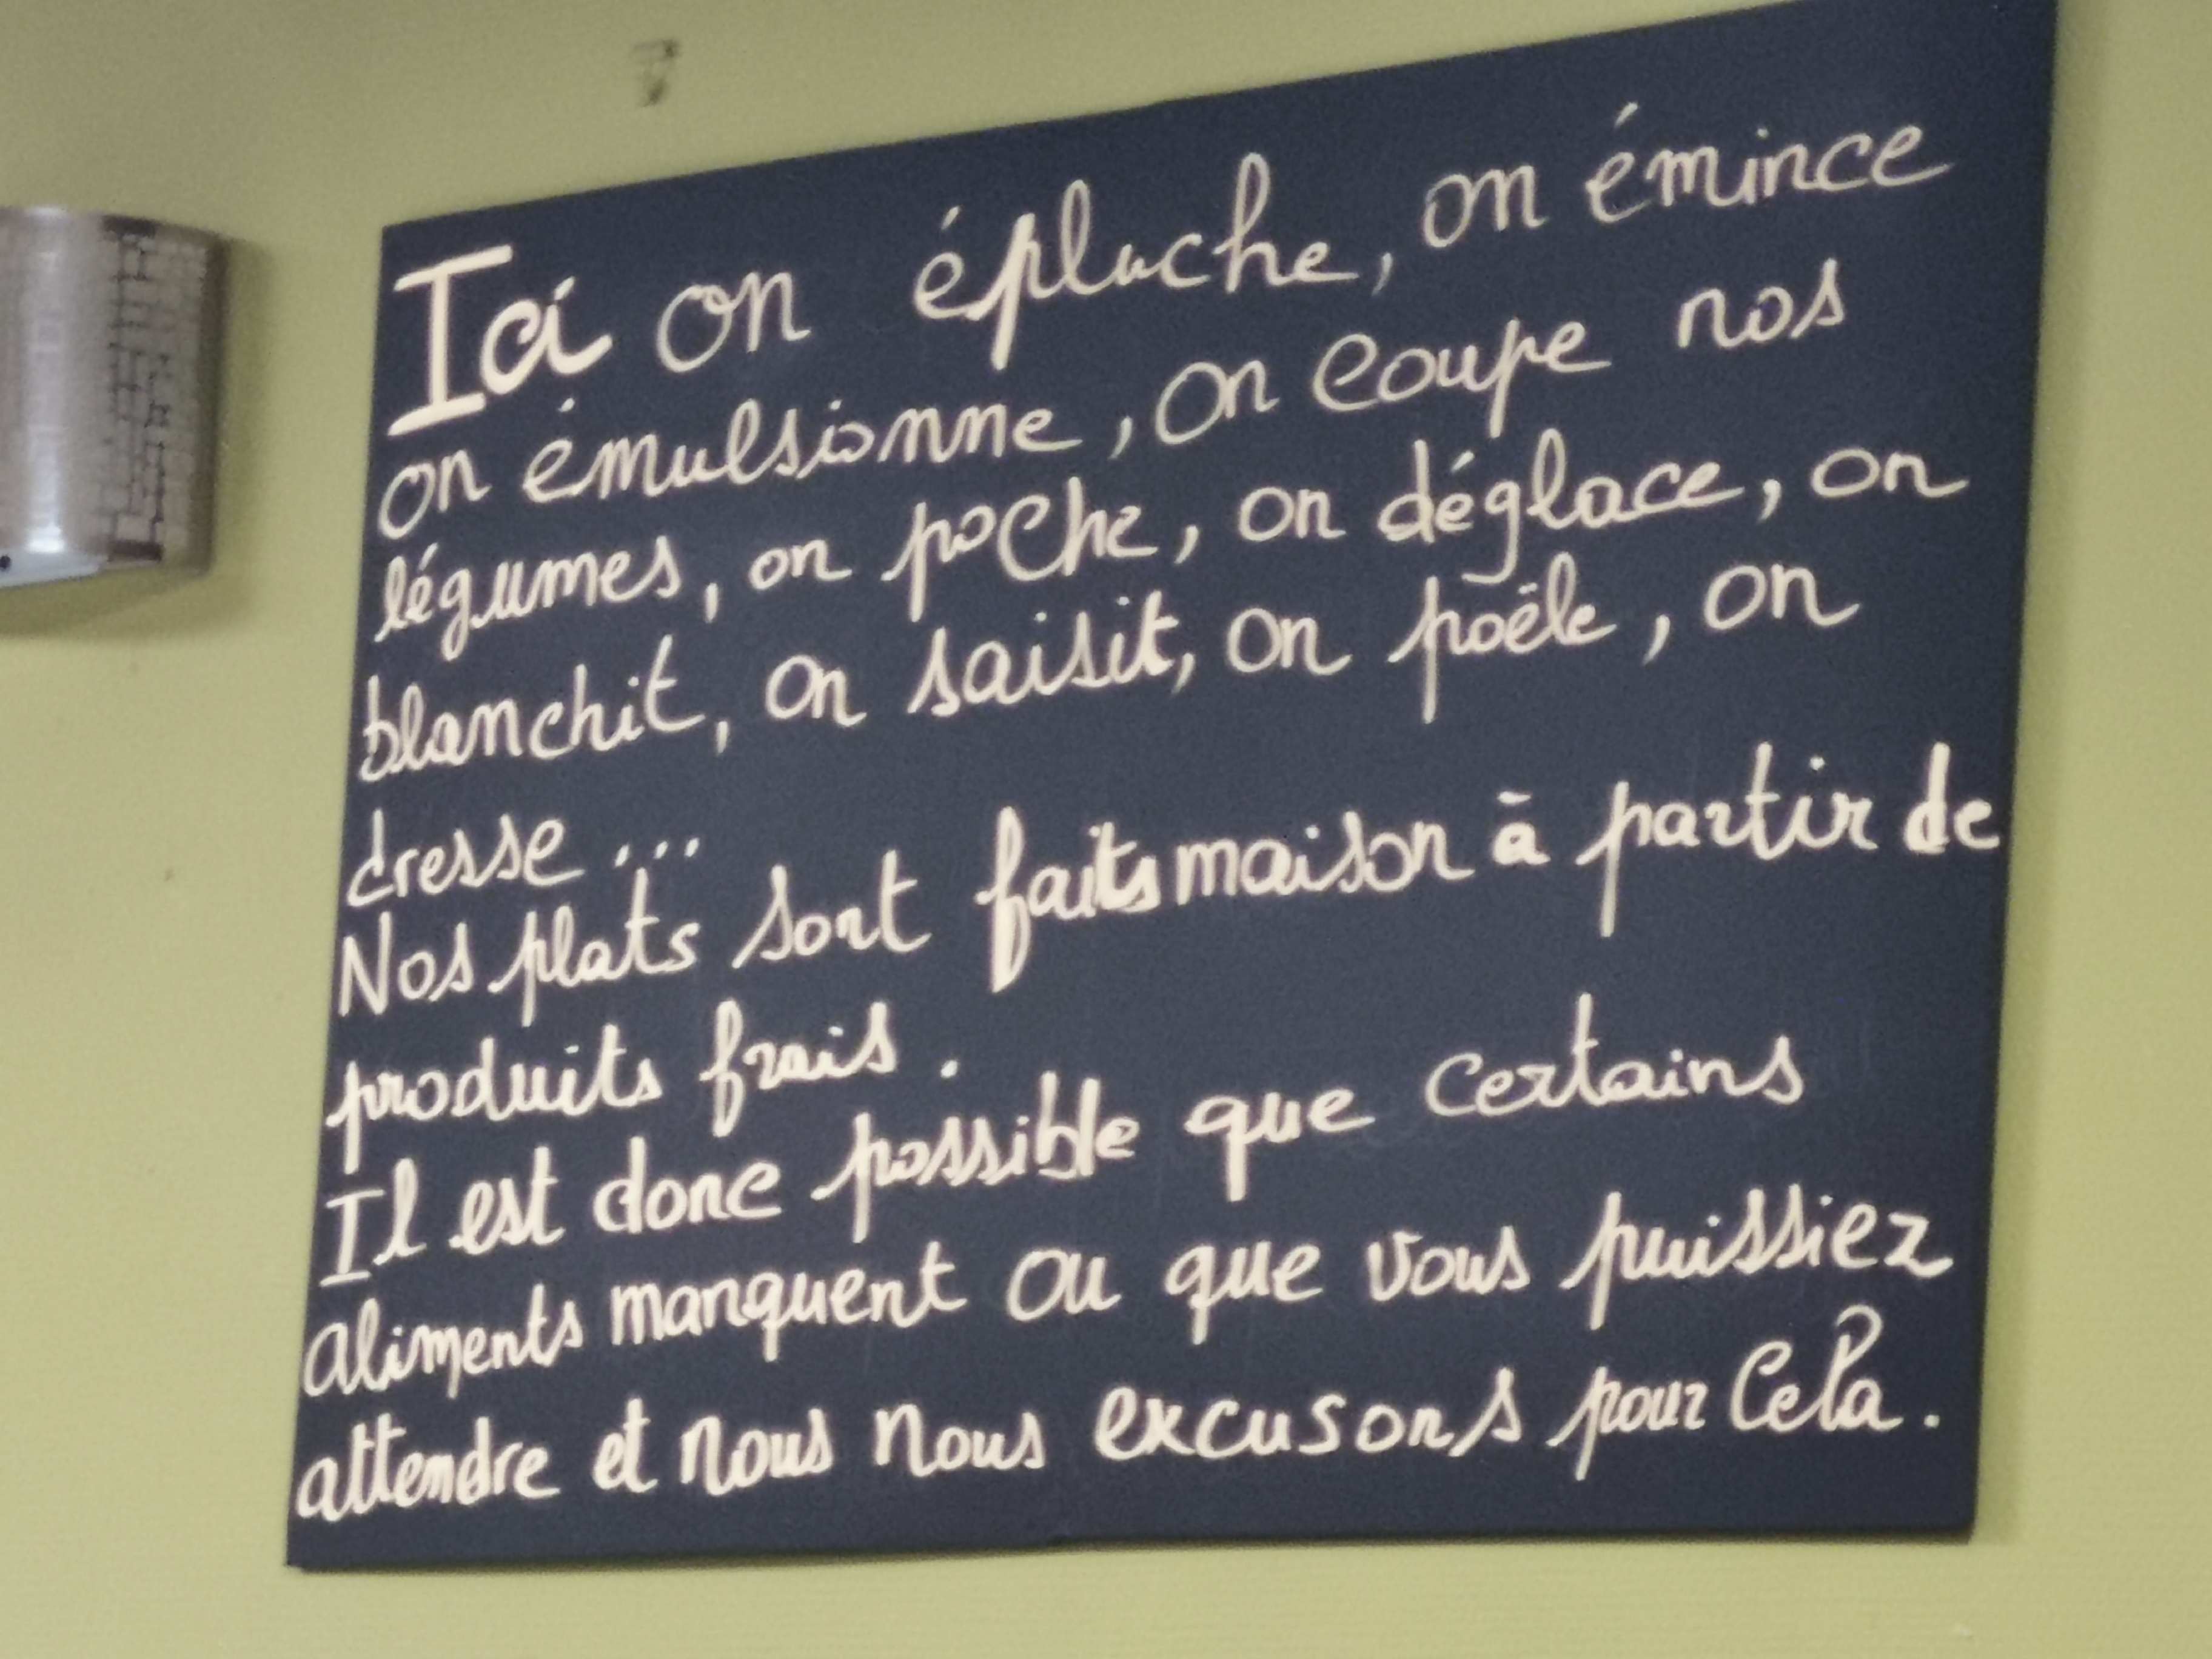 Ici on épluche, on émince
on émulsionne, on coupe nos
légumes, on poche, on déglace, on
blanchit, on saisit, on poële, on
dresse...
Nos plats sont faits maison à partir de
produits frais.
Il est donc possible que certains
aliments manquent ou que vous puissiez
attendre et nous nous excusons pour cela.